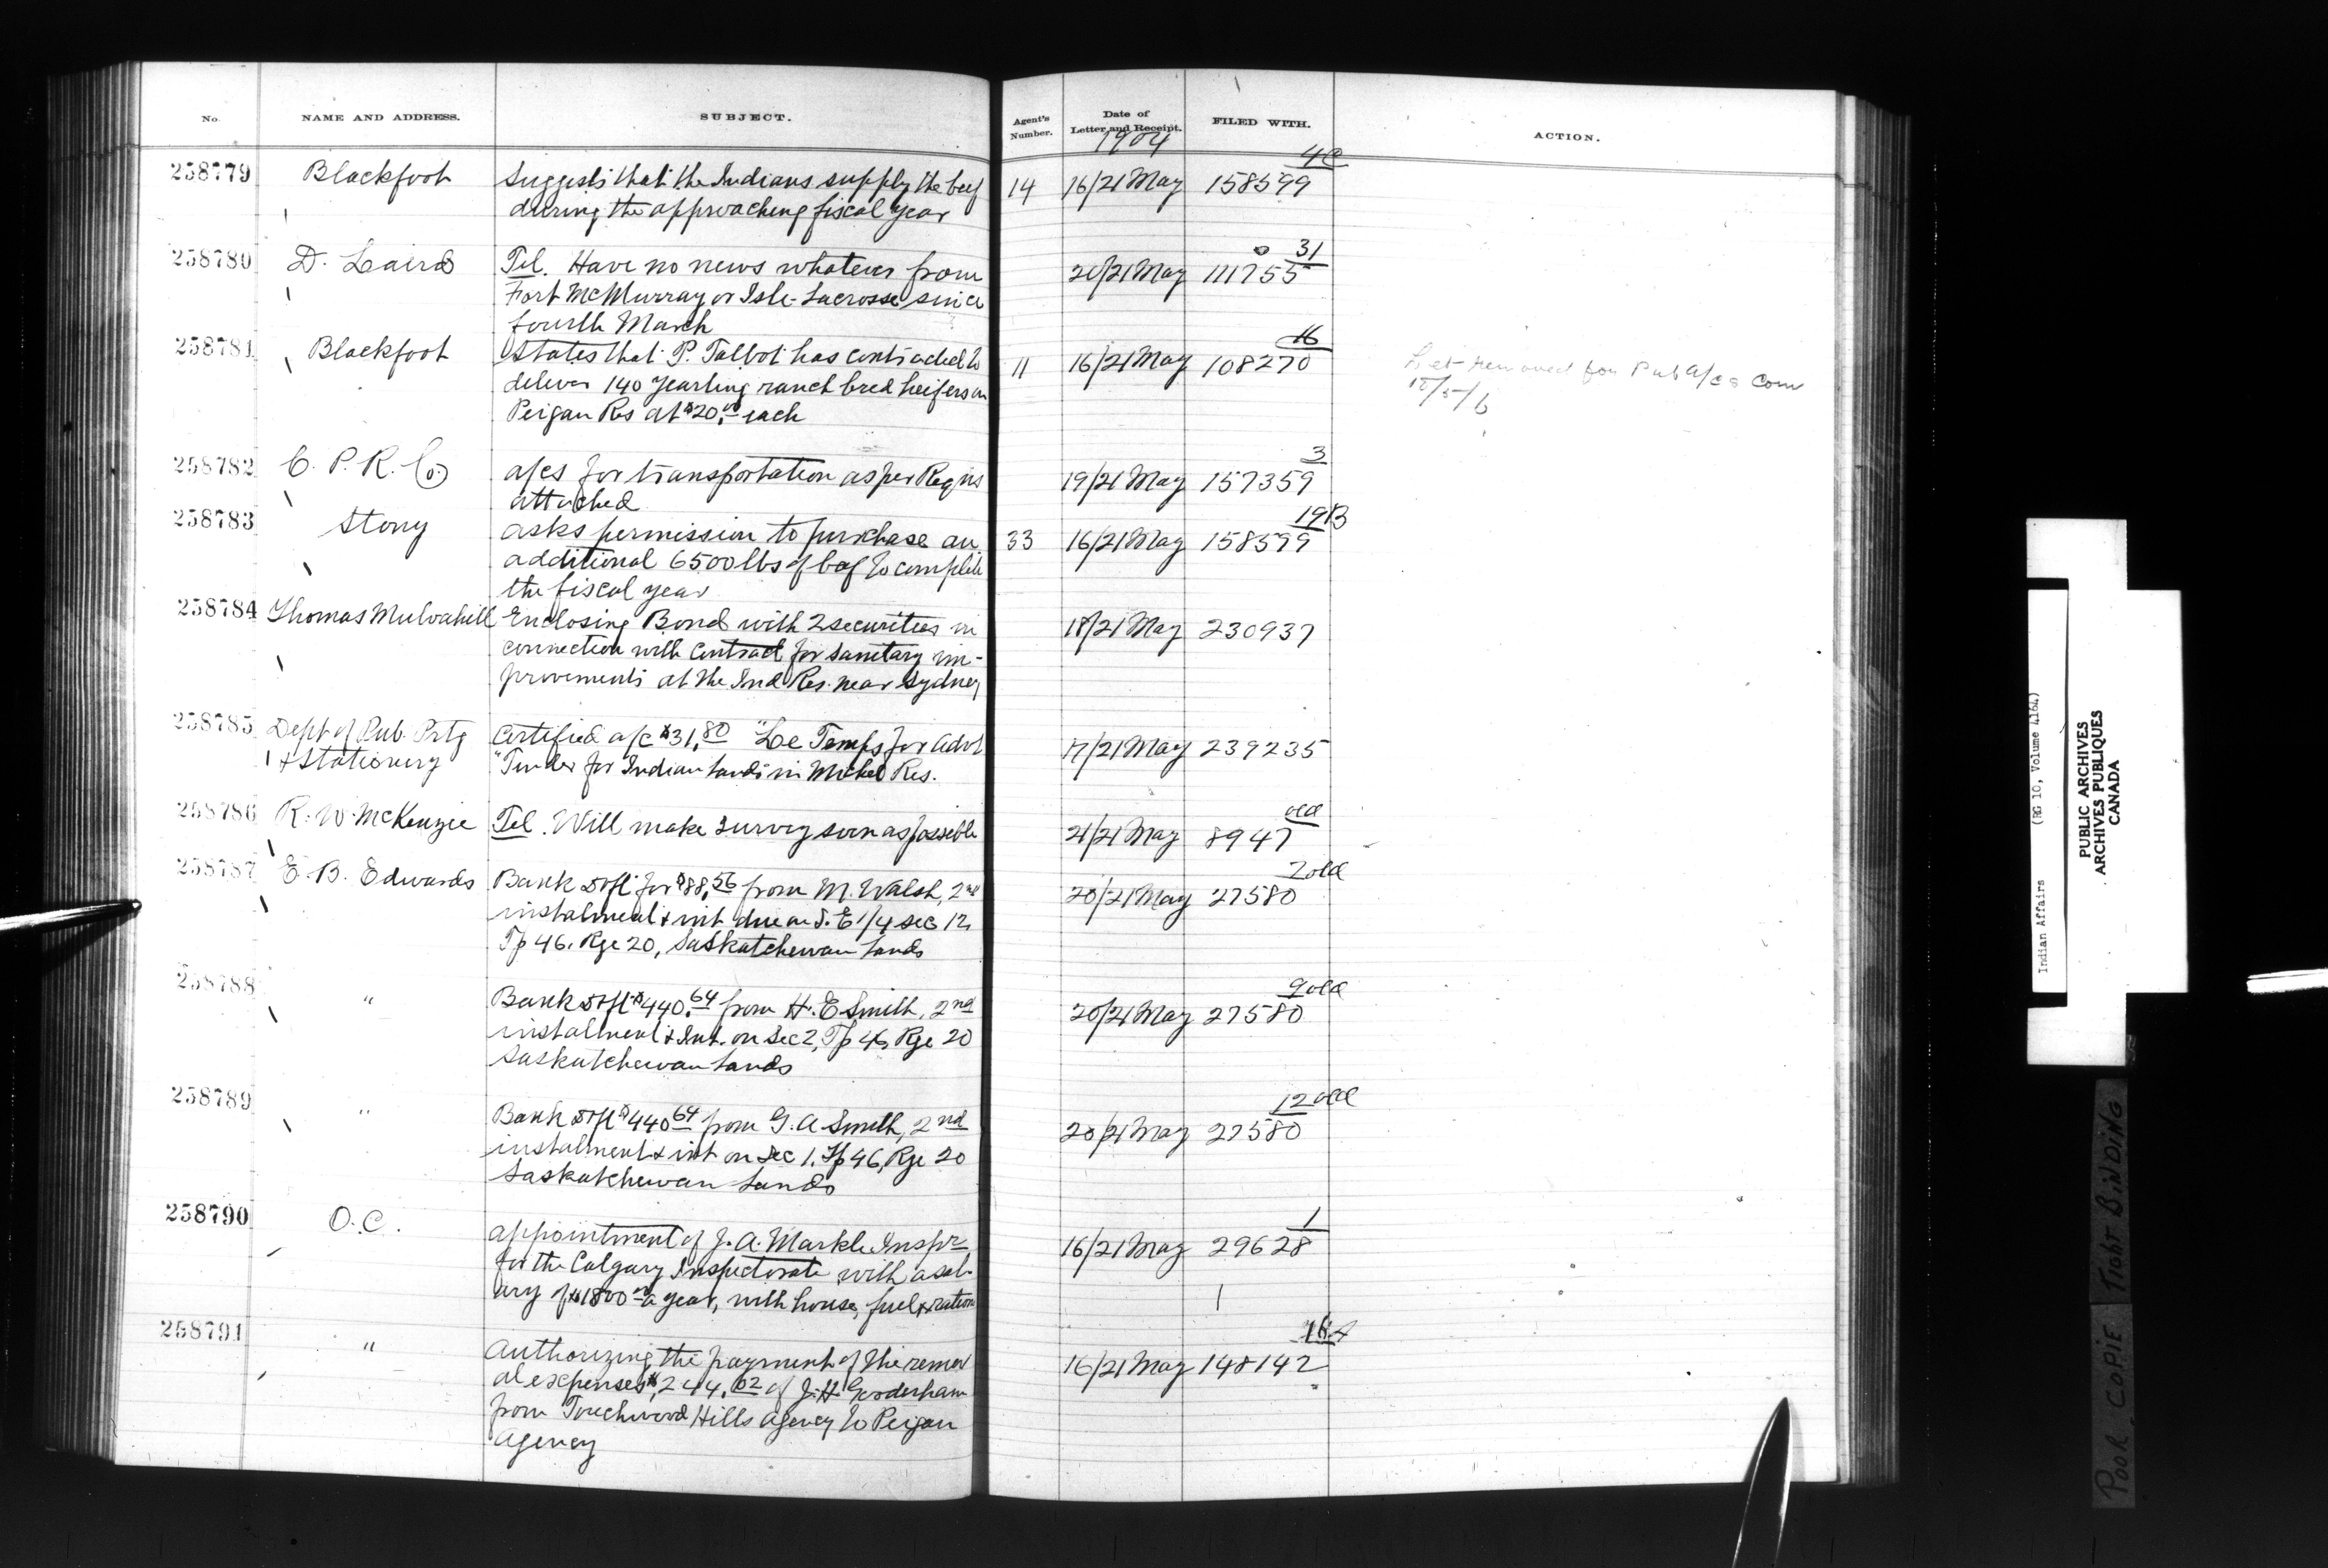 No. NAME AND ADDRESS. SUBJECT. Agent's Number. Date of Letter and Receipt. FILED WITH. ACTION.
1904
4C
258779 Blackfoot Suggests that the Indians supply the beef 14 16/21 May 158599
during the approaching fiscal year
31
258780 D. Laird Tel. Have no news whatever from 20/21 May 111755
Fort McMurray or Isle-Lacrosse since
fourth March
16
258781 Blackfoot States that P. Talbot has contracted to 11 16/21 May 108270
deliver 140 yearling ranch bred heifers on
Peigan Res at $20.00 each
Let removed for Pub a/cs Com
3
258782 C. P. R. Co. a/cs for transportation as per Reqns 19/21 May 157359
attached
19B
258783 Stony asks permission to purchase an 33 16/21 May 158599
additional 6500 lbs of beef to complete
the fiscal year
258784 Thomas Mulvahill Enclosing Bond with 2 securities in 18/21 May 230937
connection with Contract for sanitary im-
provements at the Ind Res. near Sydney
258785 Dept of Pub. Prtg Certified a/c $31.80 "Le Temps for advt 17/21 May 239235
& Stationery "Tender for Indian Lands in Michel Res.
old
258786 R. W. McKenzie Tel. Will make survey soon as possible 21/21 May 8947
2 old
258787 E. B. Edwards Bank Dft for $88.56 from M. Walsh, 2nd 20/21 May 27580
instalment & int due on S. E 1/4 sec 12
Tp 46. Rge 20, Saskatchewan Lands
9 old
258788 " Bank Dft $440.64 from H. E Smith, 2nd 20/21 May 27580
instalment & Int. on Sec 2, Tp 46, Rge 20
Saskatchewan Lands
12 old
258789 " Bank Dft $440.64 from G. A Smith, 2nd 20/21 May 27580
instalment & int on Sec 1, Tp 46, Rge 20
Saskatchewan Lands
1
258790 O. C. appointment of J. A. Markle Inspr 16/21 May 29628
for the Calgary Inspectorate with a sal-
ary of $1800.00 a year, with house, fuel & rations
258791 " Authorizing the payment of the remov 16/21 May 148142
al expenses $244.02 of J. H Gooderham
from Touchwood Hills Agency to Peigan
Agency
Indian Affairs (RG 10, Volume 4164)
PUBLIC ARCHIVES
ARCHIVES PUBLIQUES
CANADA
POOR COPIE TIGHT BINDING